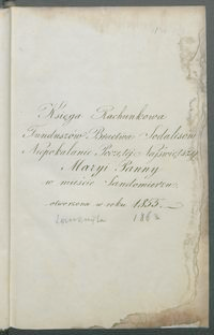 Księga Rachunkowa
Funduszów Bractwa Sodalisów
Niepokalanie Poczętej Najświętszej
Maryi Panny
w mieście Sandomierzu
otworzona w roku 1855.
1862